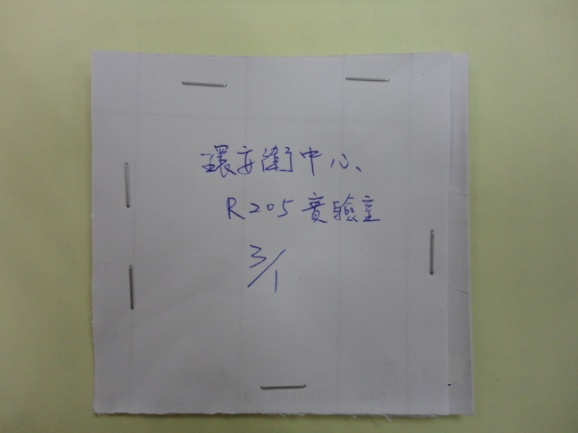 環安衛中心、
R205實驗室
3/1